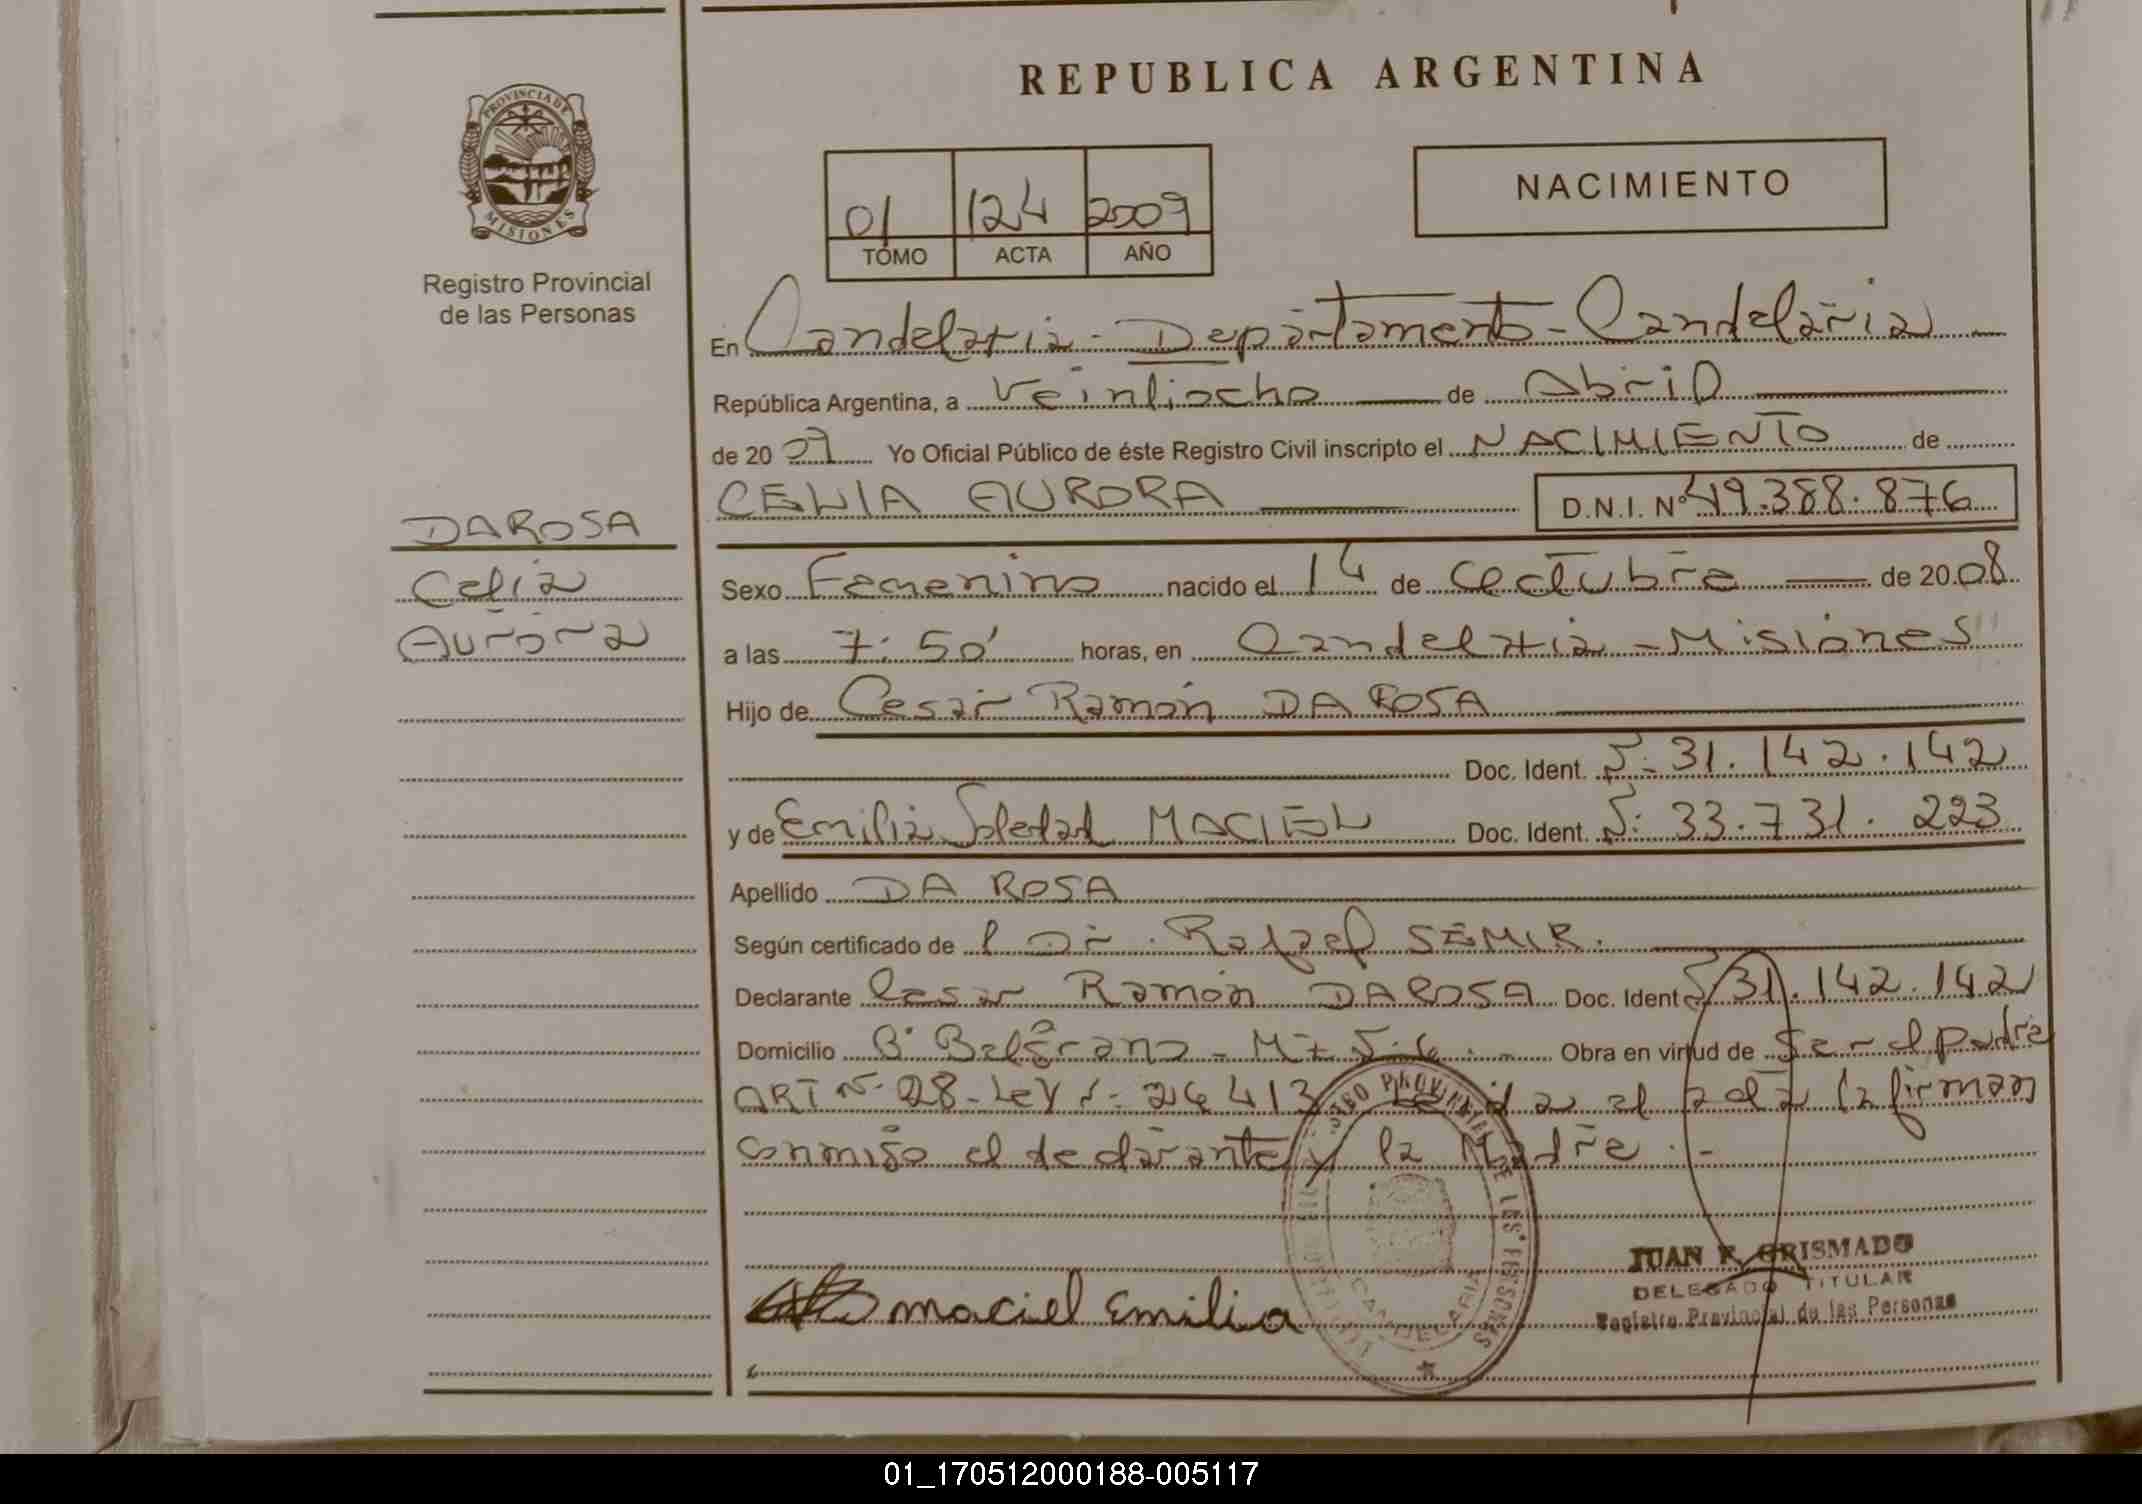 REPUBLICA ARGENTINA
PROVINCIA DE
MISIONES
Registro Provincial
de las Personas
01 124 2009
TOMO ACTA AÑO
NACIMIENTO
En Candelaria - Departamento - Candelaria
República Argentina, a Veintiocho de Abril
de 20 09 Yo Oficial Público de éste Registro Civil inscripto el NACIMIENTO de
CELIA AURORA D.N.I. Nº 49.388.876
DAROSA
Celia
Aurora
Sexo Femenino nacido el 14 de Octubre de 20 08
a las 7:50' horas, en Candelaria - Misiones
Hijo de Cesar Ramón DA ROSA
Doc. Ident. Nº 31.142.142
y de Emilia Soledad MACIEL Doc. Ident. Nº 33.731.223
Apellido DA ROSA
Según certificado de l Dr. Rafael SEMIR.
Declarante Cesar Ramón DAROSA Doc. Ident Nº 31.142.142
Domicilio Bº Belgrano - Mz Obra en virtud de Ser el padre
ART Nº 28 - LeY Nº 26413 Leida el acta la firman
conmigo el declarante y la Madre . -
maciel Emilia
CANDELARIA
JUAN R. GRISMADO
DELEGADO TITULAR
Registro Provincial de las Personas
01_170512000188-005117